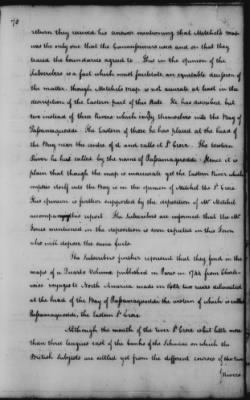 70
return they received his answer mentioning that Mitchel's map
was the only one that the Commissioners used and on that they
traced the boundaries agreed to. This in the opinion of the
Subscribers is a fact which must facilitate an equitable decision of
the matter, though Mitchel's map is not accurate at least in the
description of the Eastern part of this State. He has described but
two instead of three Rivers which empty themselves into the Bay of
Passamaquodde. The Eastern of these he has placed at the head of
the Bay near the center of it and calls it St Croix. The western
River he has called by the name of Passamaquodde. Hence it is
plain that though the map is inaccurate yet the Eastern River which
empties itself into the Bay is in the opinion of Mitchel the St Croix
This opinion is further supported by the deposition of Mr Mitchel
accompanying this report. The Subscribers are informed that the Mr
Jones mentioned in the deposition is soon expected in this Town
who will depose the same facts.
The Subscribers further represent that they find in the
maps of a Quarto Volume published in Paris in 1744 from Charle-
voixs voyages to North America made on both two rivers delineated
at the head of the Bay of Passamaquodde the western of which is called
Passamaquodde, the Eastern St Croix
Although the mouth of the river St Croix what but little more
than three leagues east of the banks of the Schudiac on which the
British Subjects are settled yet from the different courses of the two
Rivers